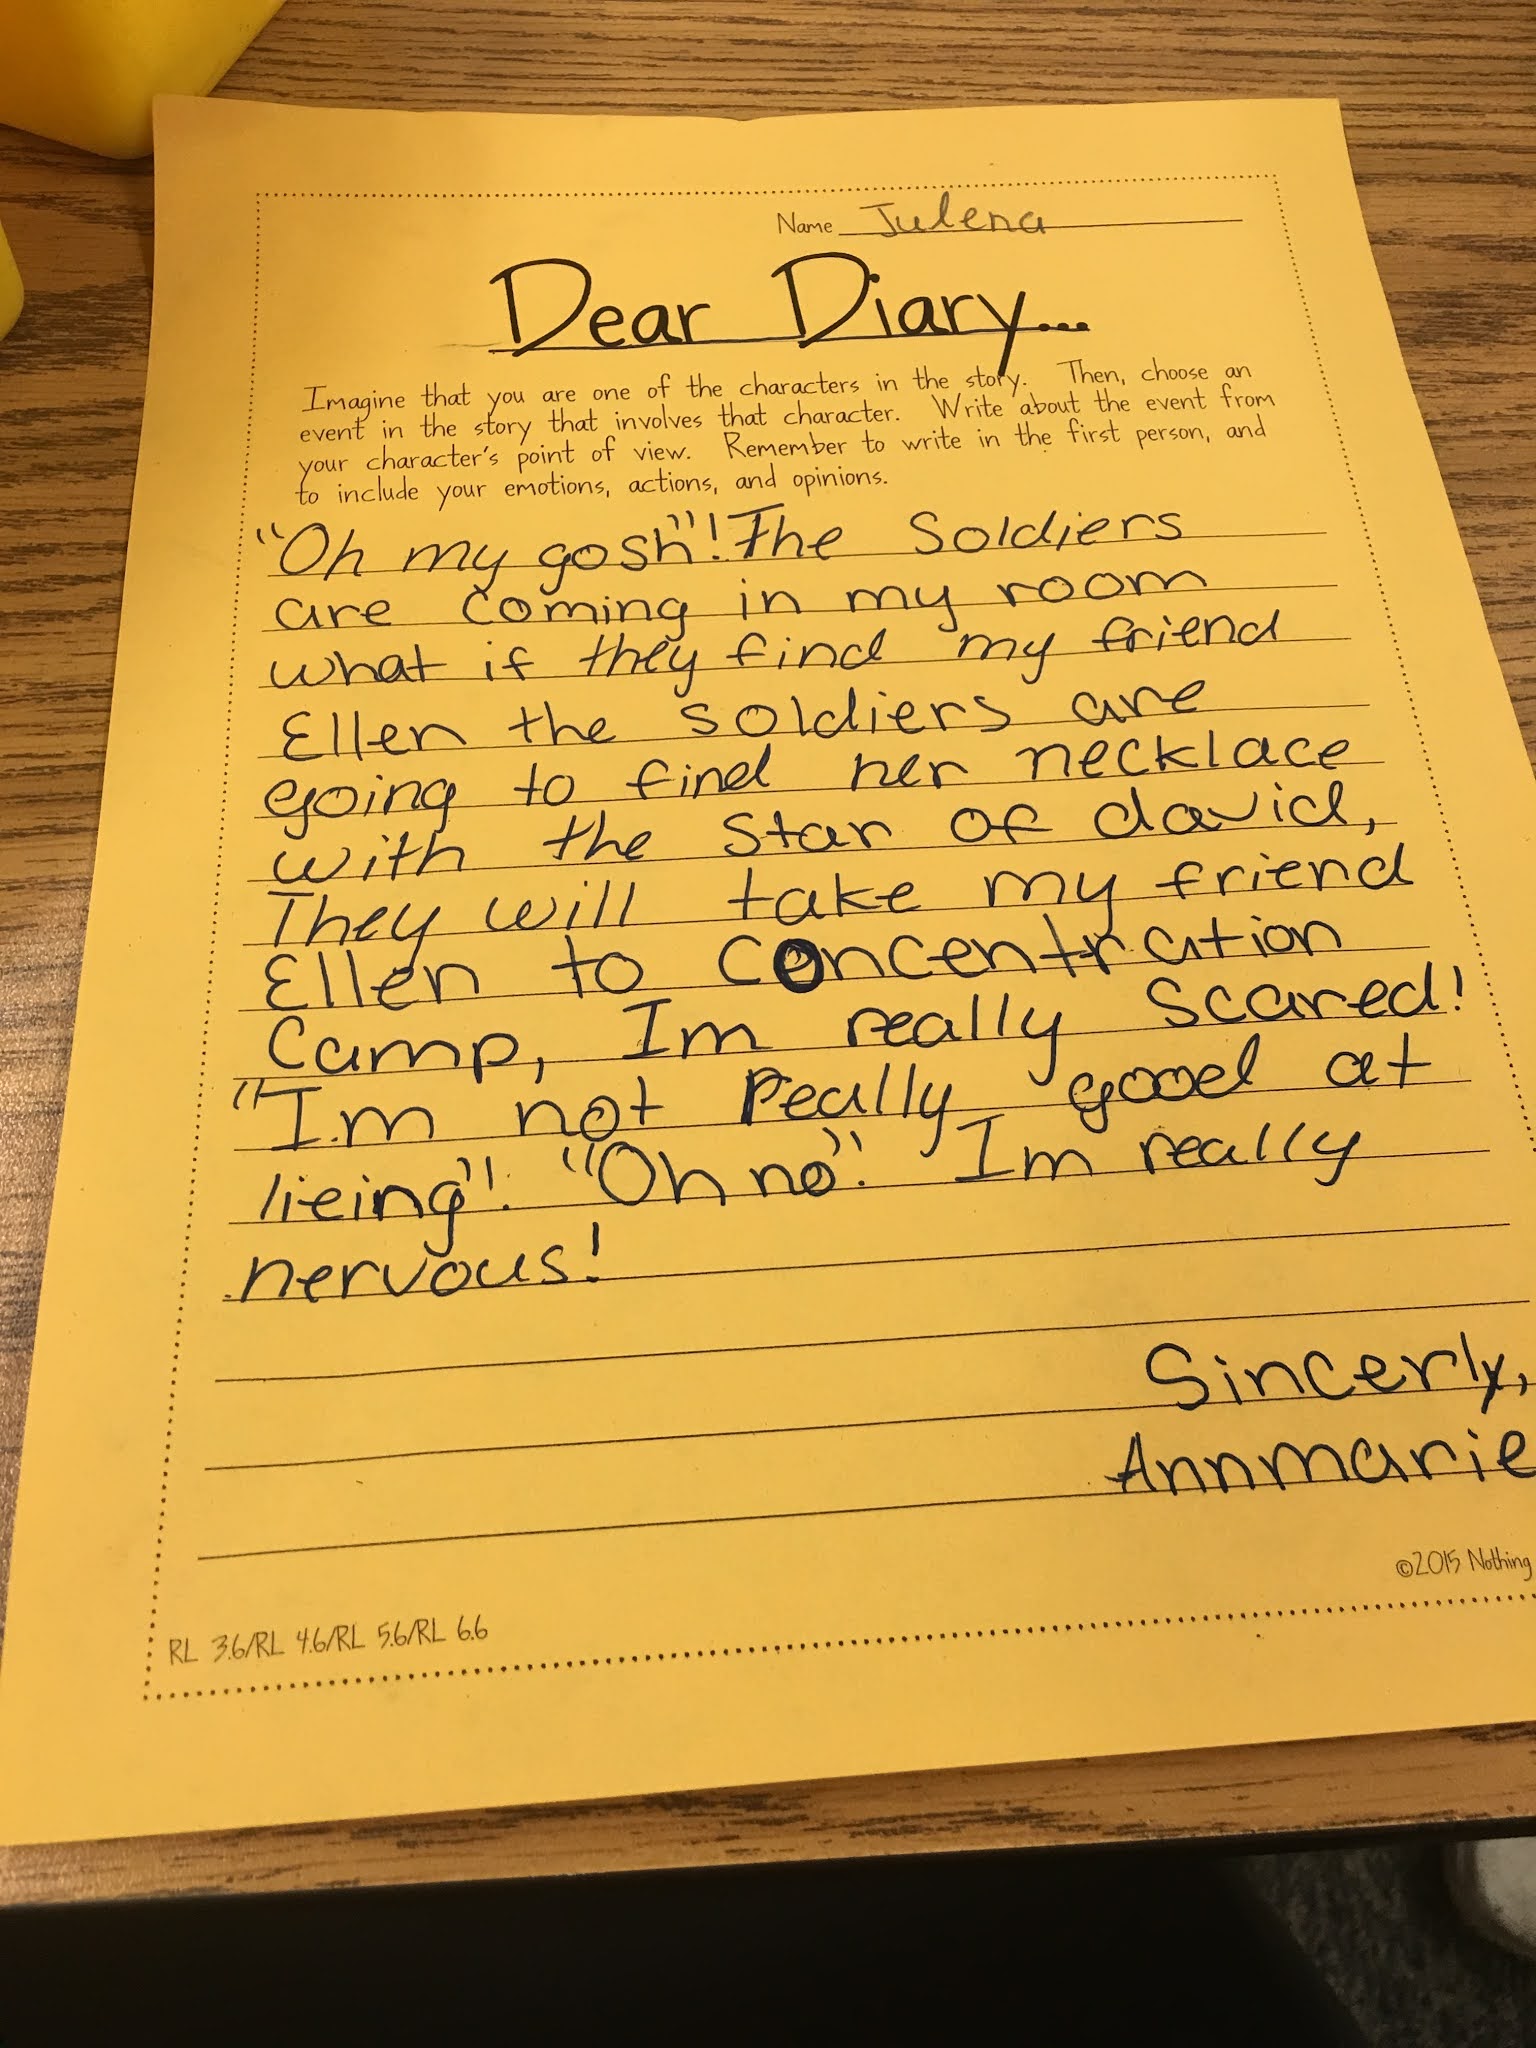 Name Julena
Dear Diary...
Imagine that you are one of the characters in the story. Then, choose an
event in the story that involves that character. Write about the event from
your character's point of view. Remember to write in the first person, and
to include your emotions, actions, and opinions.
"Oh my gosh"! The Soldiers
are coming in my room
what if they find my friend
Ellen the soldiers are
going to find her necklace
with the Star of david,
They will take my friend
Ellen to concentration
Camp, Im really Scared!
"Im not really good at
lieing"! "Oh no". Im really
nervous!
Sincerly,
Annmarie
©2015 Nothing
RL 3.6/RL 4.6/RL 5.6/RL 6.6